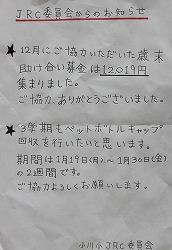 JRC委員会からのお知らせ
★12月にご協力いただいた歳末
助け合い募金は12019円
集まりました。
ご協力、ありがとうございました。
★3学期もペットボトルキャップ
回収を行いたいと思います。
期間は1月19日(月)～1月30日(金)
の2週間です。
ご協力よろしくお願いします。
小川小JRC委員会